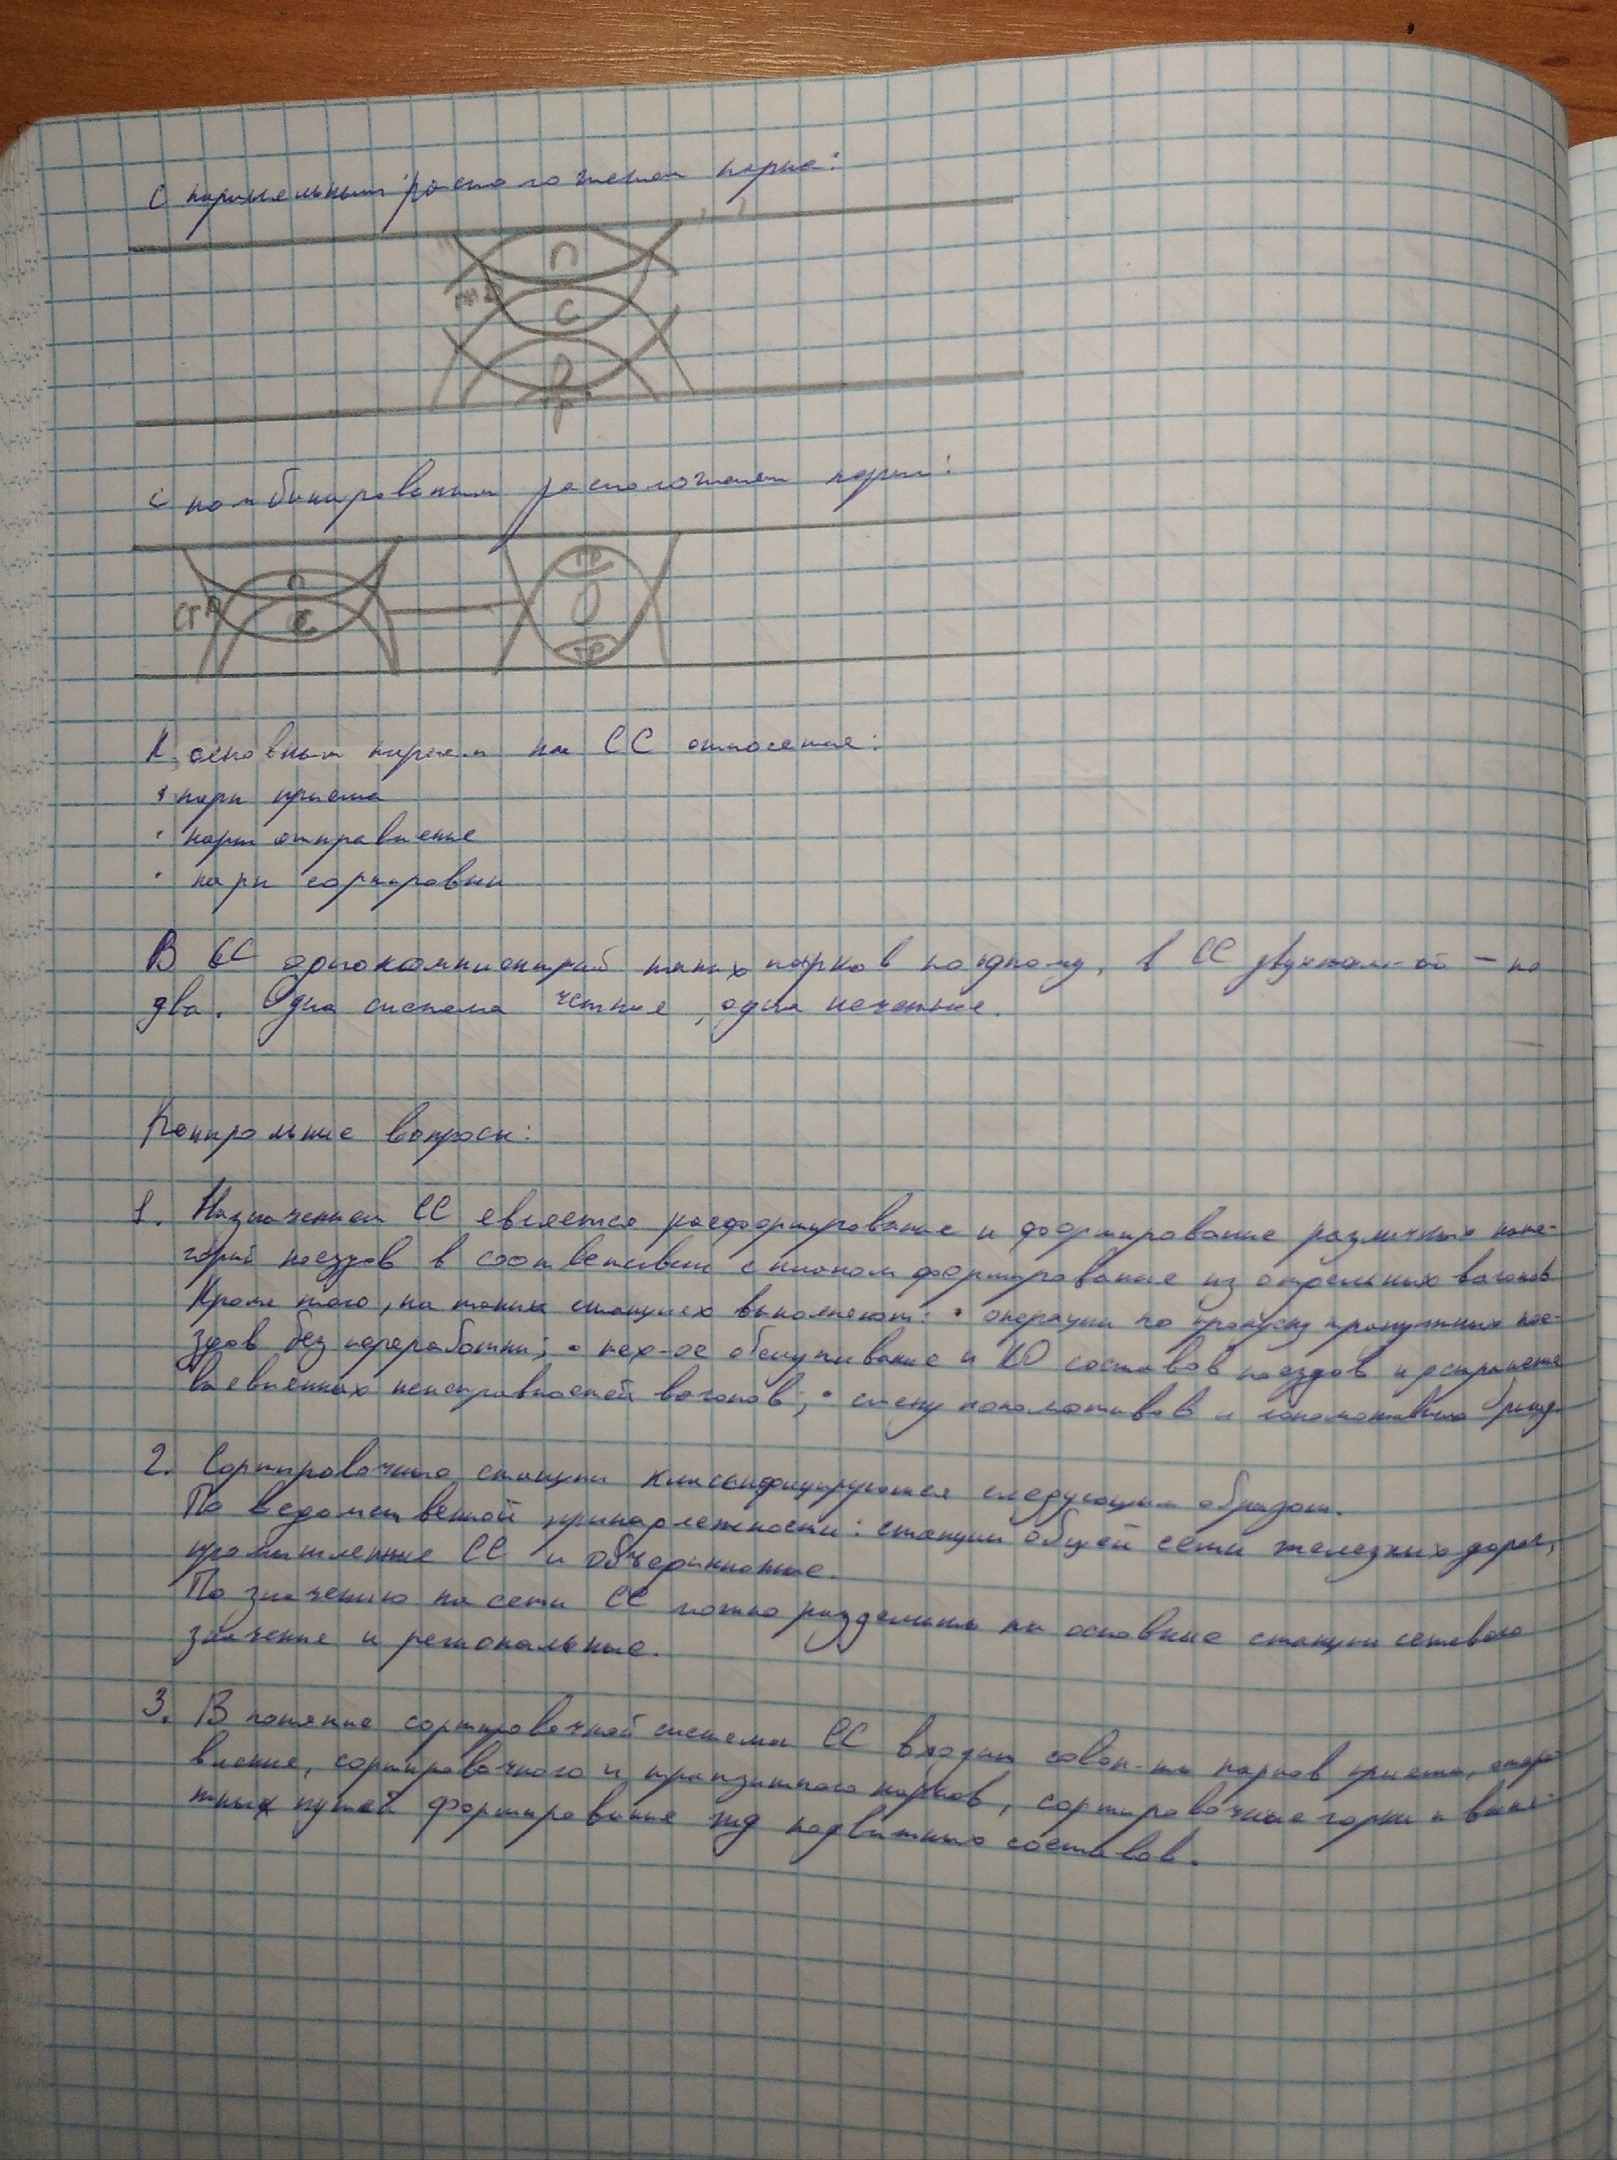 с параллельным расположением парка:
П
С
О
ТР
с комбинированным расположением парка:
П
С
ТР
О
ТР
К основным паркам на СС относятся:
• парк приема
• парк отправление
• парк сортировки
В СС однокомплектной таких парков по одному, в СС двухком-ой – по
два. Одна система четная, одна нечетные.
Контрольные вопросы:
1. Назначением СС является расформирование и формирование различных кате-
горий поездов в соответствии с планом формирование из отдельных вагонов.
Кроме того, на таких станциях выполняют: • операции по пропуску попутных пое-
здов без переработки; • тех-ое обслуживание и КО составов поездов и устранение
выевленных неисправностей вагонов; • смену локомотивов и локомотивных бригад.
2. Сортировочные станции классифицируются следующим образом.
По ведомственной принадлежности: станции общей сети железных дорог,
промышленные СС и объединенные.
По значению на сети СС можно разделить на основные станции сетевого
значение и региональные.
3. В понятие сортировочной системы СС входит совок-ть парков приема, отпра
вление, сортировочного и транзитного парков, сортировочные горки и вытя-
тных путей формирование жд подвижных составов.